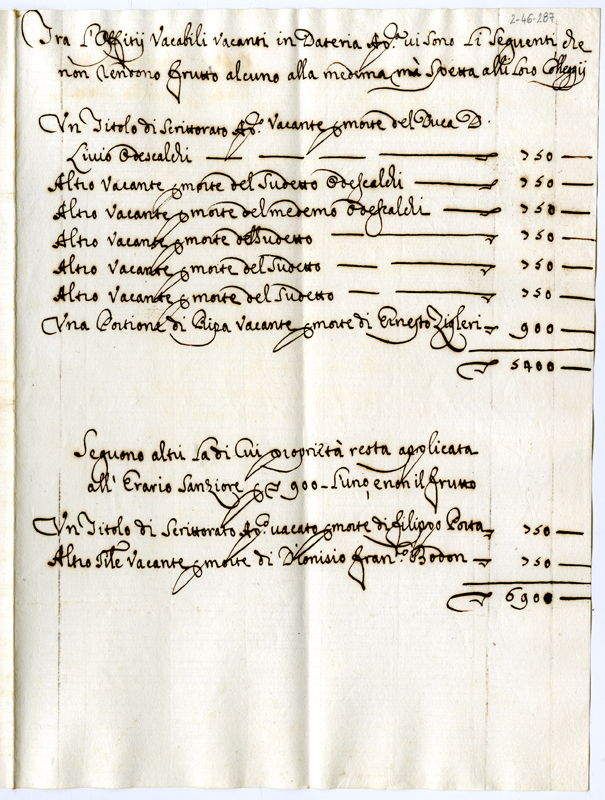 2-46-287
Tra l'Offitij Vacabili vacanti in Dateria Ap.ca vi sono li seguenti che
non rendono frutto alcuno alla medema, mà spetta alli loro Colleggij
Un Titolo di Scrittorato Ap.co Vacante p morte del Duca D.
Livio Odescalchi — — — 750 —
Altro Vacante p morte del Sudetto Odescalchi — 750 —
Altro Vacante p morte del medemo Odescalchi — 750 —
Altro Vacante p morte del Sudetto — — 750 —
Altro Vacante p morte del Sudetto — — 750 —
Altro Vacante p morte del Sudetto — — 750 —
Una Portione di Ripa Vacante p morte di Ernesto Zigleri — 900 —
5400 —
Seguono altri la di cui proprietà resta applicata
all' Erario Sanziore p 900 - l'uno, e non il frutto
Un Titolo di Scrittorato Ap.co vacato p morte di Filippo Porta — 750 —
Altro Sile Vacante p morte di Dionisio Fran.co Bodon — 750 —
6900 —